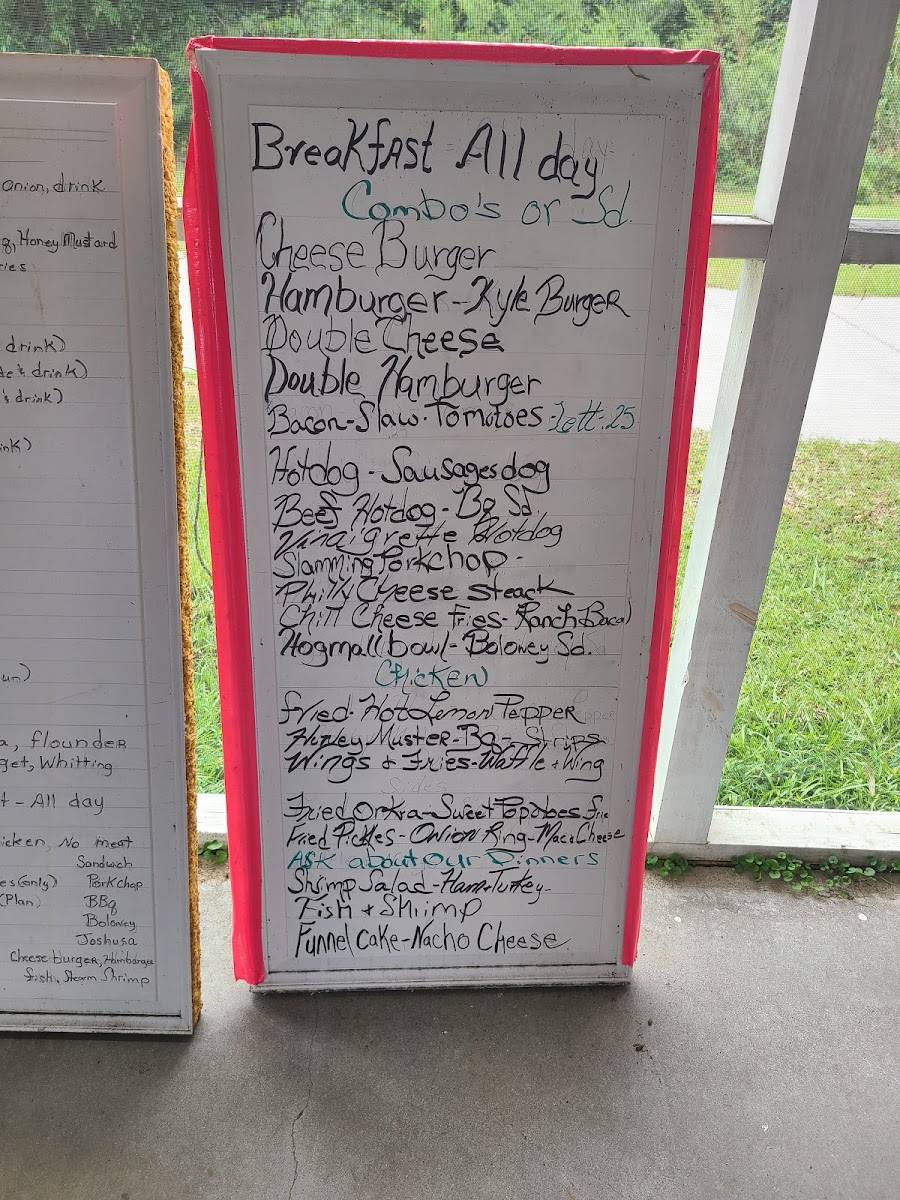 onion, drink
Honey Mustard
drink)
& drink)
& drink)
flounder
Whitting
- All day
No meat
Sandwich
(only) Porkchop
(Plan) BBq
Boloney
Joshusa
Cheeseburger, Hambarger
fish, Steam Shrimp
Breakfast All day
Combo's or Sd.
Cheese Burger
Hamburger--Kyle Burger
Double Cheese
Double Hamburger
Bacon-Slaw-Tomotoes-Lett-.25
Hotdog - Sausages dog
Beef Hotdog - Bq Sd
Vinaigrette Hotdog
Slamming Porkchop -
Philly Cheese steack
Chill Cheese fries- Ranch
Hogmall bowl- Boloney Sd.
Chicken
fried-Hot Lemon Pepper
Honey Muster-Bq- Strips
Wings & Fries-Waffle & Wing
Sides
Fried Orkra-Sweet Popobes frie
Fried Pickles- Onion Ring-Mac & Cheese
Ask about Our Dinners
Shrimp Salad-Ham-Turkey-
Fish & Shrimp
Funnel Cake-Nacho Cheese